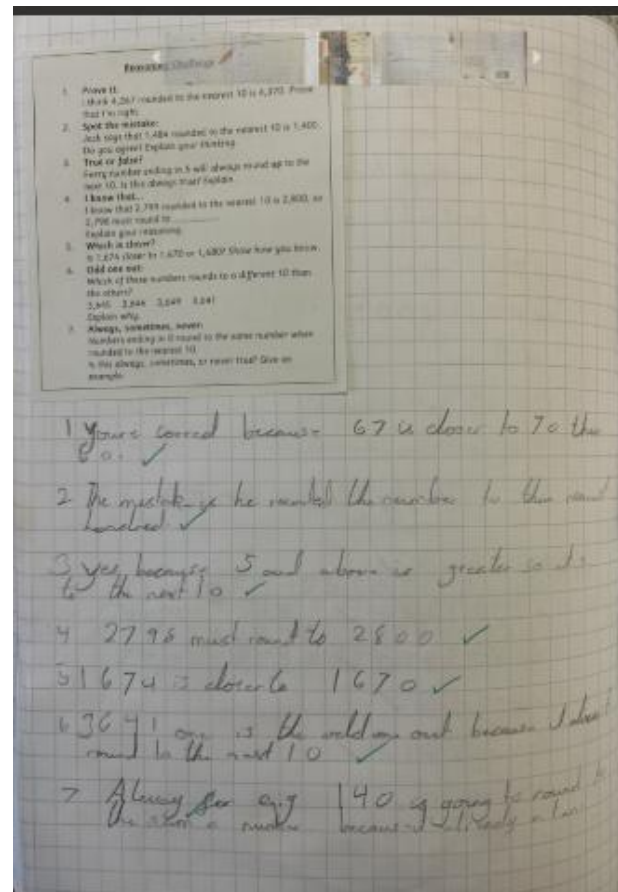 Reasoning Challenge
1. Prove it:
I think 4,267 rounded to the nearest 10 is 4,270. Prove
that I'm right.
2. Spot the mistake:
Jack says that 1,484 rounded to the nearest 10 is 1,400.
Do you agree? Explain your thinking.
3. True or false?
Every number ending in 5 will always round up to the
next 10. Is this always true? Explain.
4. I know that...
I know that 2,799 rounded to the nearest 10 is 2,800, so
2,798 must round to
Explain your reasoning.
5. Which is closer?
Is 1,674 closer to 1,670 or 1,680? Show how you know.
6. Odd one out:
Which of these numbers rounds to a different 10 than
the others?
3,645 3,646 3,649 3,641
Explain why.
7. Always, sometimes, never:
Numbers ending in 0 round to the same number when
rounded to the nearest 10.
Is this always, sometimes, or never true? Give an
example.
1 Your correct because 67 is closer to 70 than
60.
2 The mistake is he rounded the number to the
hundred
3 yes because 5 and above is greater so its
to the next 10
4 2798 must round to 2800
5 1674 is closer to 1670
6 3641 one is the odd one out because it doesn't
round to the next 10
7 Always for e.g 140 is going to round to
the same number because already a ten